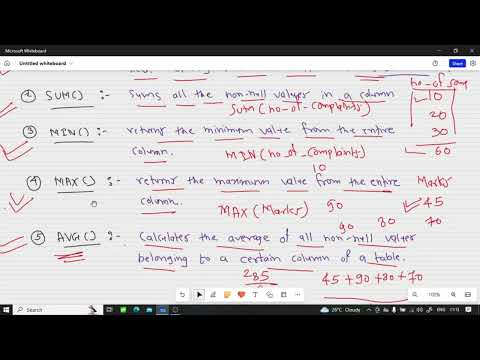 Microsoft Whiteboard
Untitled whiteboard
② SUM() :- Sums all the non-null values in a column
SUM(no_of_complaints)
10
20
30
60
③ MIN() :- returns the minimum value from the entire
column.
MIN(no_of_complaints)
10
④ MAX() :- returns the maximum value from the entire
column.
MAX(Marks) 90
Marks
45
90 80 70
⑤ AVG() :- Calculates the average of all non-null values
belonging to a certain column of a table.
285
45+90+80+70
100%
Search
26°C Cloudy
ENG